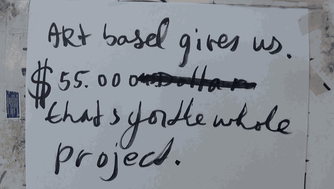 ARt basel gives us.
$ 55.000
that's for the whole
project.